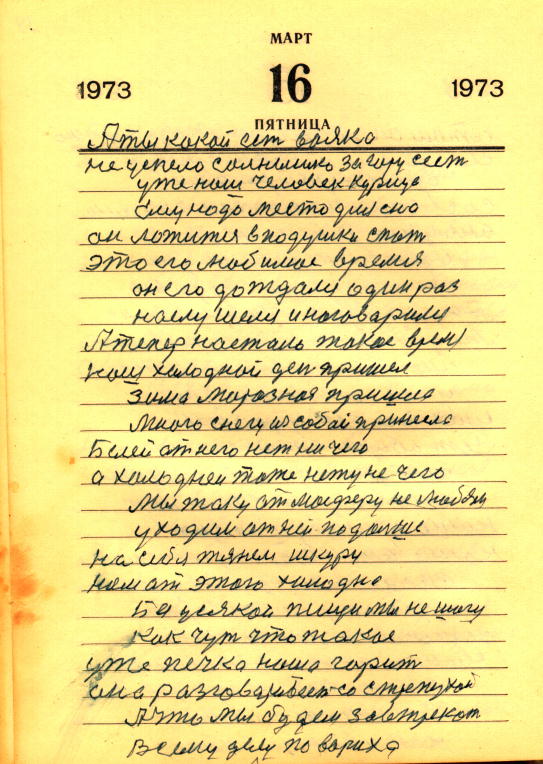 МАРТ
1973 16 1973
ПЯТНИЦА
Аты какой ест вояка
не успело солнышко за гору сест
уже наш человек курице
Ему надо место для сна
он ложится в подушки спат
это его любимое время
он его дождали один раз
наелу шели и наговарили
Атепер настало такое врем
наш холодной ден пришел
Зима марозная пришла
много снегу из собай принесла
Белей от него нет ни чего
а халодней тоже нету не чего
мы таку атмасферу не любям
уходим от ней подолше
на себя тянем шкуру
нам от этого холодно
Без усякой пищи мы не шагу
как чут что такое
уже печка наша гарит
она разговаривает со стрепухой
Ачто мы будем завтрекат
Всему делу повариха